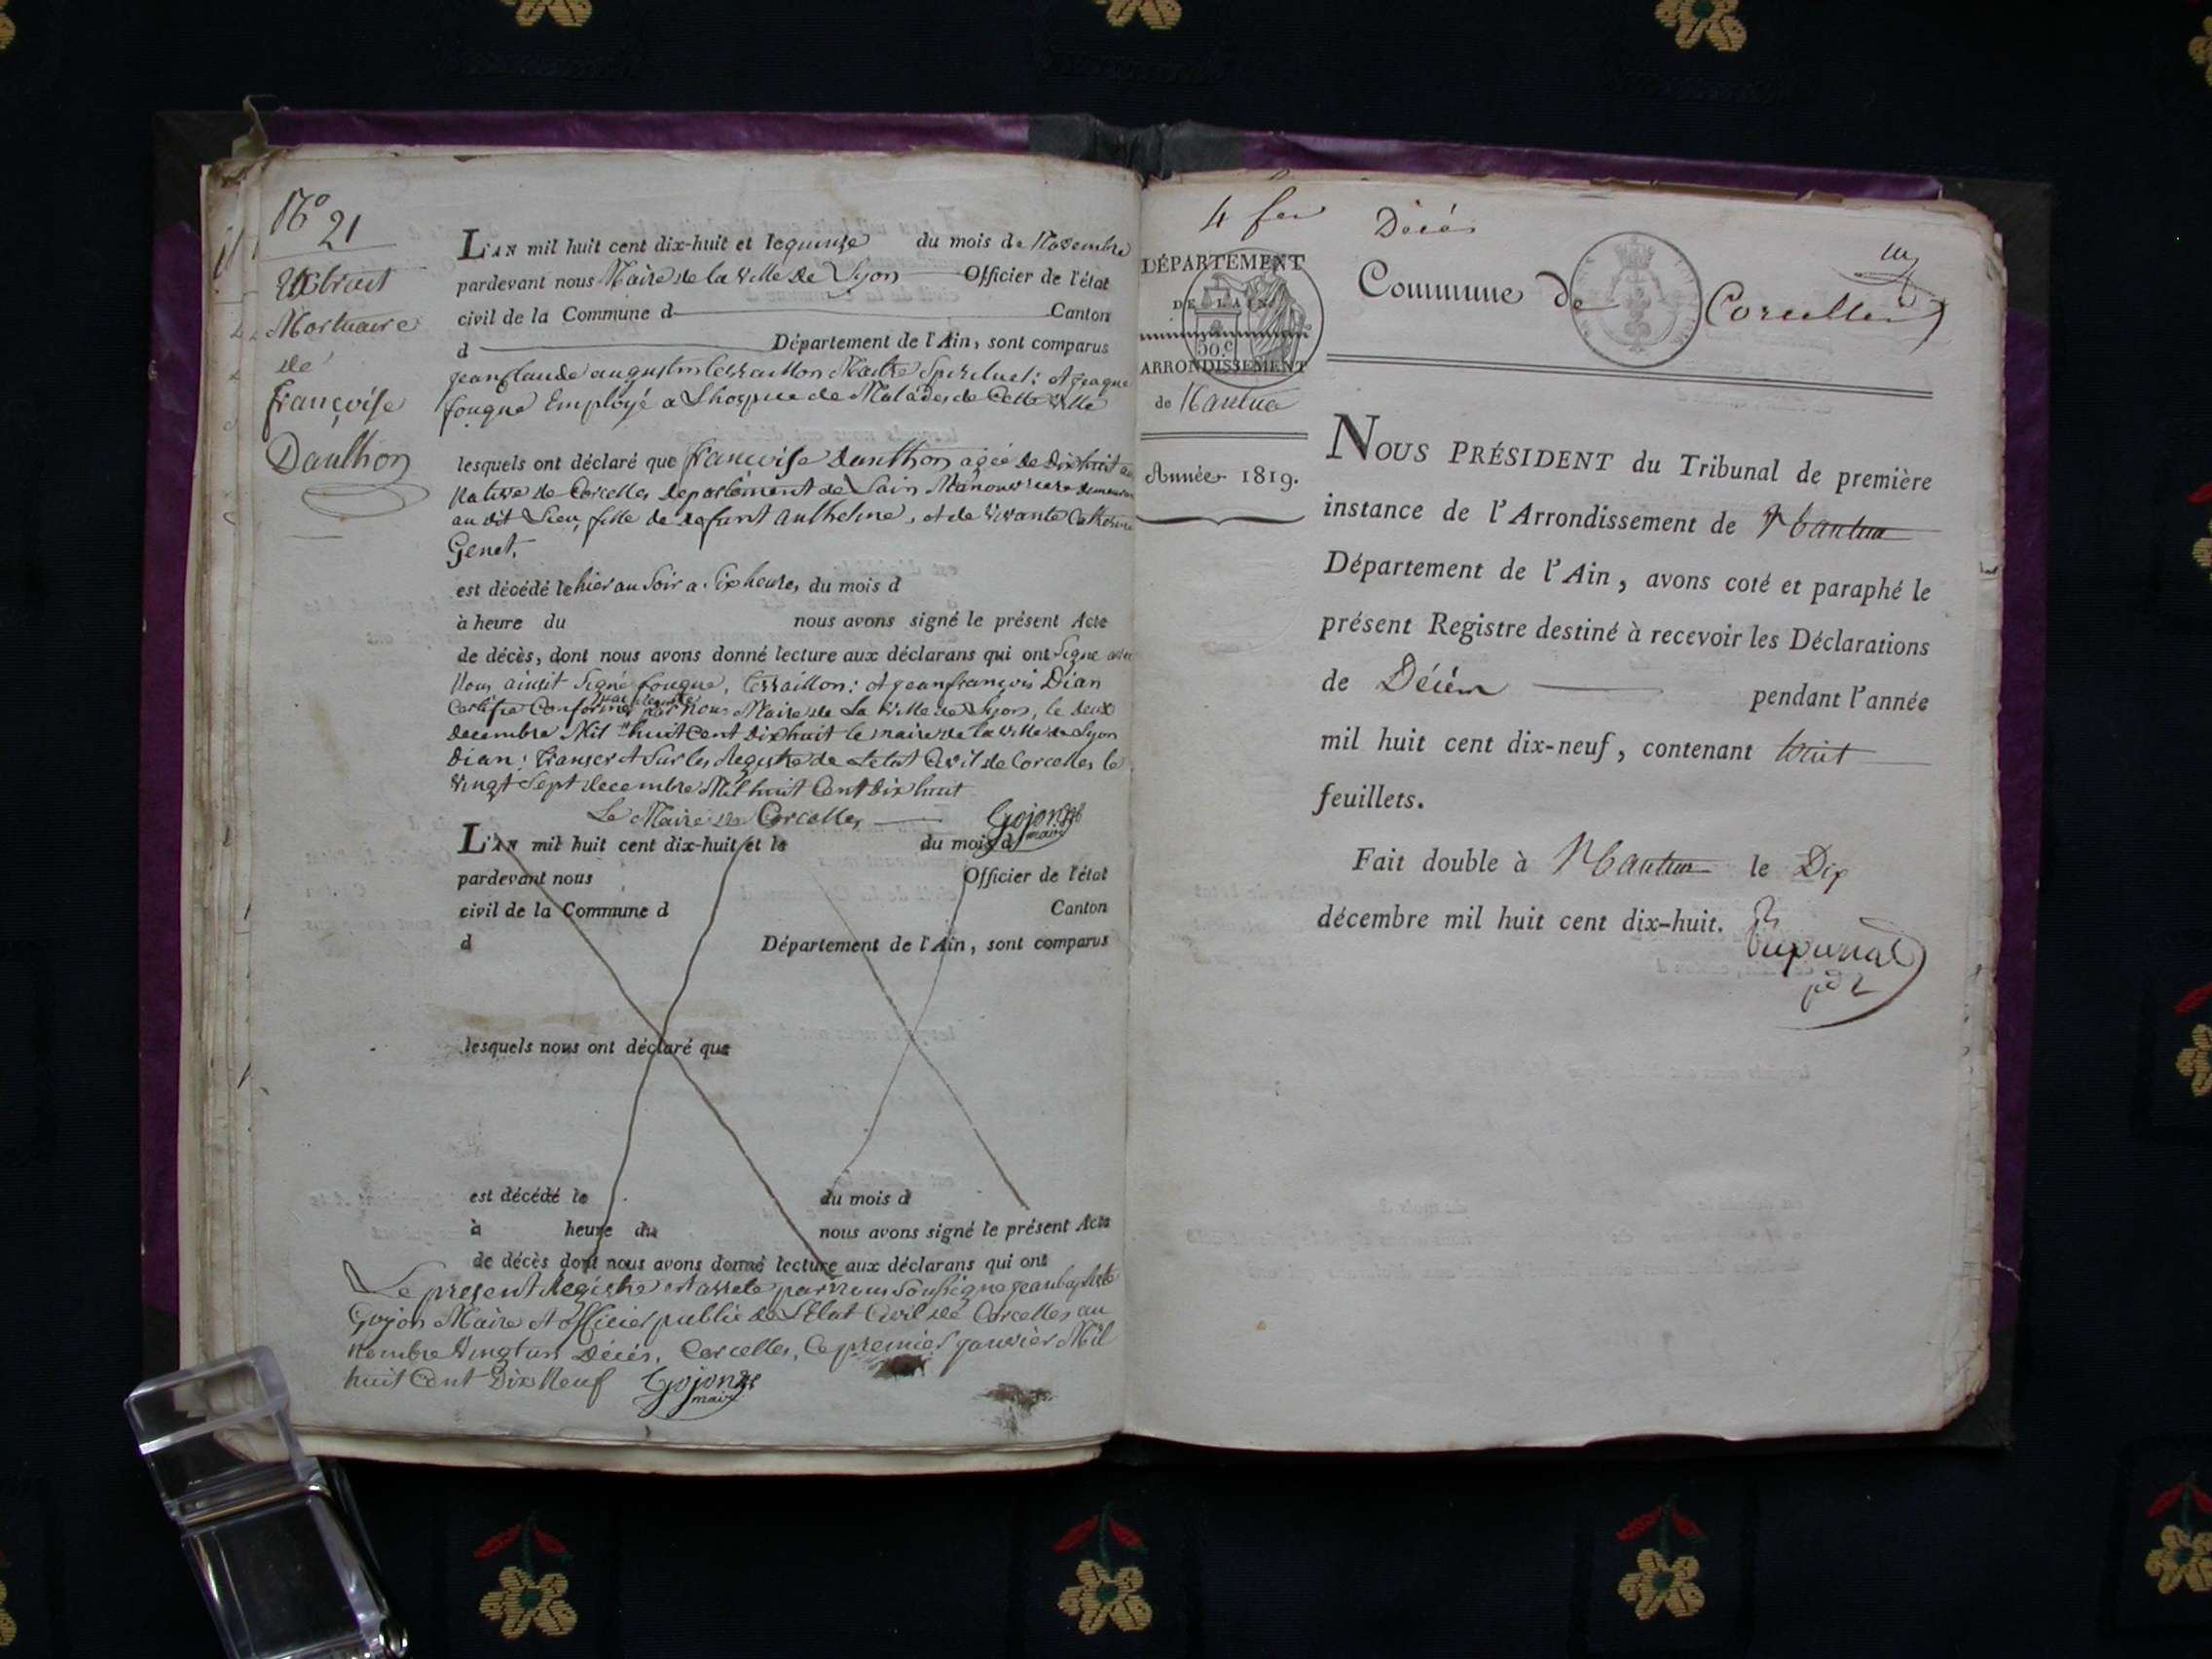 N° 21
Extrait
Mortuaire
de
françoise
Danthon
L'AN mil huit cent dix-huit et le quinze du mois de Novembre
pardevant nous Maire de la ville de Lyon Officier de l'état
civil de la Commune d Canton
d Département de l'Ain, sont comparus
jean claude augustin terraillon Maitre Spirituel: et jaque
fouque Employé a Lhospice de Malades de Cette ville
lesquels ont déclaré que françoise Danthon agée de Dix huit an
Native de Corcelles département de Lain Manouvriere demeurant
au dit Lieu, fille de defunt anthelme, et de vivante Catherine
Genet.
est décédé le hier au Soir a Six heures du mois d
à heure du nous avons signé le présent Acte
de décès, dont nous avons donné lecture aux déclarans qui ont Signe avec
Nous ainsit Signé fouque, terraillon: et jean françois Dian
Certifié Conforme par Nous Maire de La ville de Lyon, le deux
decembre Mil huit Cent Dix huit le maire de la ville de Lyon
Dian: Transcrit Sur les Registre de Letat Civil de Corcelles le
vingt Sept decembre Mil huit Cent Dix huit
Le Maire de Corcelles Gojon
maire
L'AN mil huit cent dix-huit et le du mois d
pardevant nous Officier de l'état
civil de la Commune d Canton
d Département de l'Ain, sont comparus
lesquels nous ont déclaré que
est décédé le du mois d
à heure du nous avons signé le présent Acte
de décès dont nous avons donné lecture aux déclarans qui ont
Le present Registre est arrete par nous Soussigne jean baptiste
Gojon Maire et officier public de L'Etat Civil de Corcelles au
nombre Vingt un Décés, Corcelles, Ce premier janvier Mil
huit Cent Dix Neuf Gojon
maire
4 feu Décés
DÉPARTEMENT
DE L'AIN
50.c
ARRONDISSEMENT
de Nantua
Année 1819.
Commune de Corcelles
NOUS PRÉSIDENT du Tribunal de première
instance de l'Arrondissement de Nantua
Département de l'Ain, avons coté et paraphé le
présent Registre destiné à recevoir les Déclarations
de Décès pendant l'année
mil huit cent dix-neuf, contenant huit
feuillets.
Fait double à Nantua le Dix
décembre mil huit cent dix-huit.